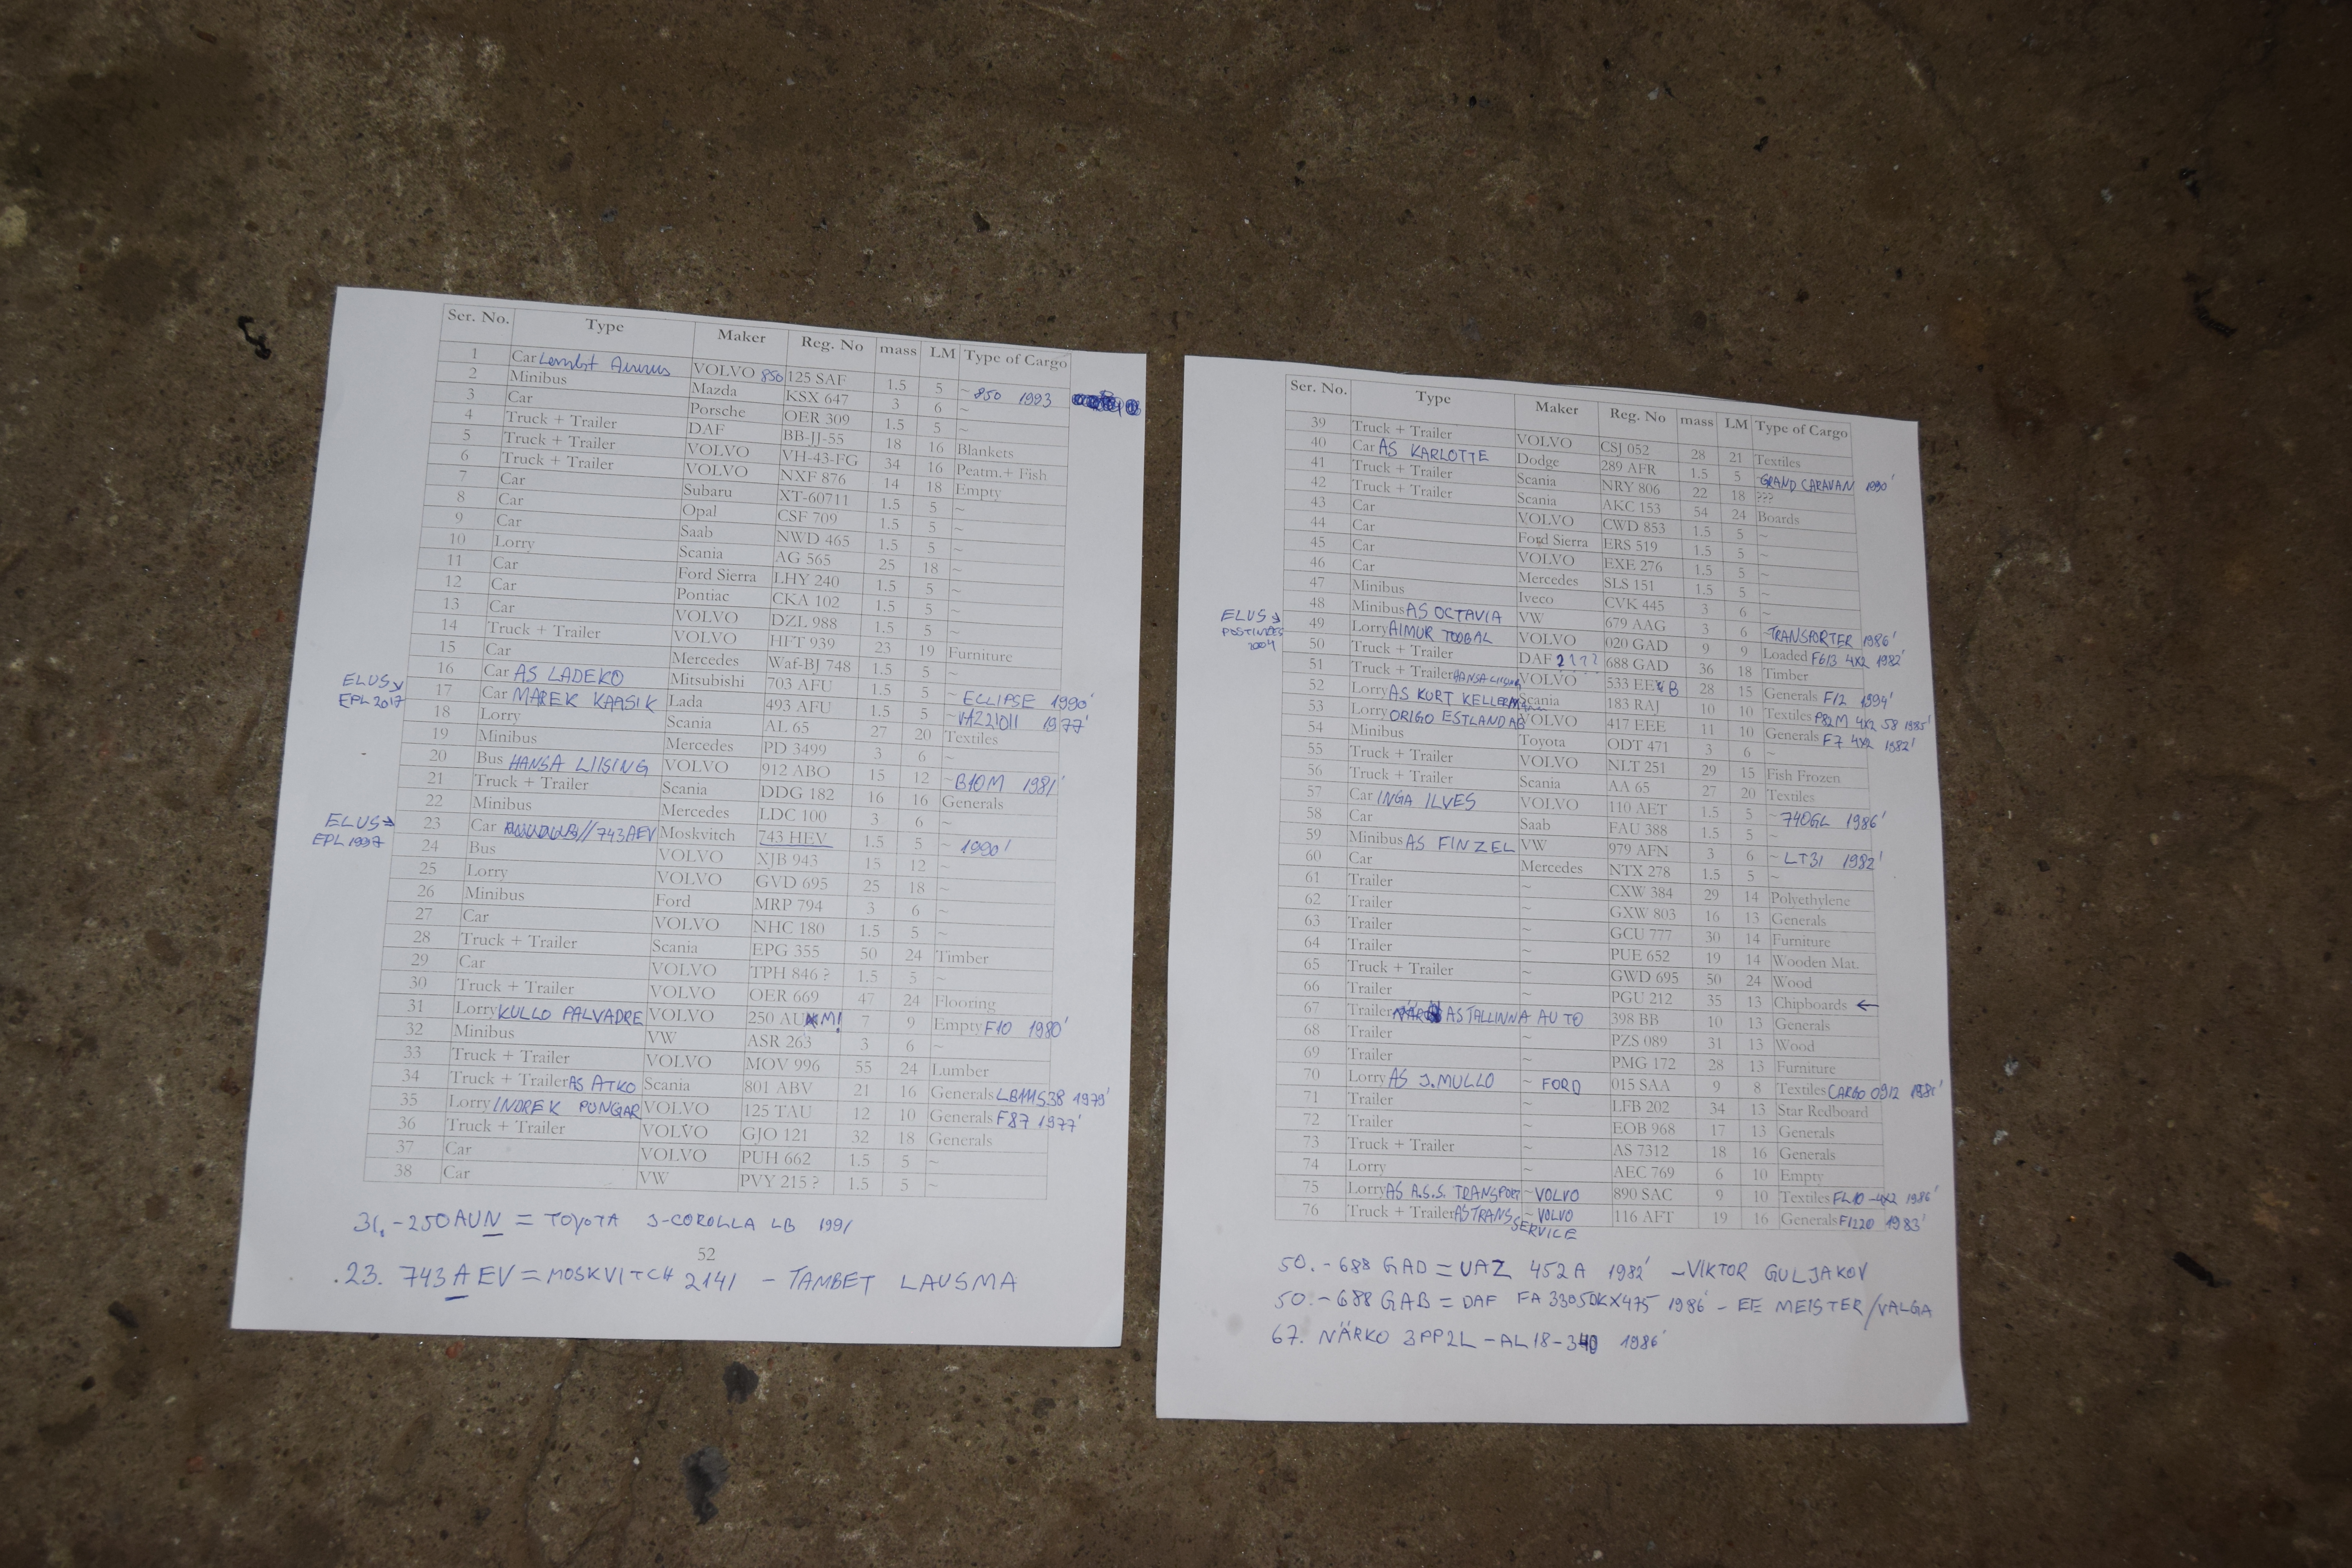 Ser. No. Type Maker Reg. No mass LM Type of Cargo
1 Car VOLVO 850 125 SAF 1.5 5 ~ 850 1993
2 Minibus Mazda KSX 647 3 6 ~
3 Car Porsche OER 309 1.5 5 ~
4 Truck + Trailer DAF BB-JJ-55 18 16 Blankets
5 Truck + Trailer VOLVO VH-43-FG 34 16 Peatm.+ Fish
6 Truck + Trailer VOLVO NXF 876 14 18 Empty
7 Car Subaru XT-60711 1.5 5 ~
8 Car Opal CSF 709 1.5 5 ~
9 Car Saab NWD 465 1.5 5 ~
10 Lorry Scania AG 565 25 18 ~
11 Car Ford Sierra LHY 240 1.5 5 ~
12 Car Pontiac CKA 102 1.5 5 ~
13 Car VOLVO DZL 988 1.5 5 ~
14 Truck + Trailer VOLVO HFT 939 23 19 Furniture
15 Car Mercedes Waf-BJ 748 1.5 5 ~
16 Car AS LADEKO Mitsubishi 703 AFU 1.5 5 ~ ECLIPSE 1990'
ELUS EPL 2017 17 Car MAREK KAASIK Lada 493 AFU 1.5 5 ~ VAZ21011 1977'
18 Lorry Scania AL 65 27 20 Textiles
19 Minibus Mercedes PD 3499 3 6 ~
20 Bus HANSA LIISING VOLVO 912 ABO 15 12 ~ B10M 1981'
21 Truck + Trailer Scania DDG 182 16 16 Generals
22 Minibus Mercedes LDC 100 3 6 ~
ELUS EPL 1997 23 Car //743AEV Moskvitch 743 HEV 1.5 5 ~ 1990'
24 Bus VOLVO XJB 943 15 12 ~
25 Lorry VOLVO GVD 695 25 18 ~
26 Minibus Ford MRP 794 3 6 ~
27 Car VOLVO NHC 180 1.5 5 ~
28 Truck + Trailer Scania EPG 355 50 24 Timber
29 Car VOLVO TPH 846 ? 1.5 5 ~
30 Truck + Trailer VOLVO OER 669 47 24 Flooring
31 Lorry KULLO PALVADRE VOLVO 250 AUM! 7 9 Empty F10 1980'
32 Minibus VW ASR 263 3 6 ~
33 Truck + Trailer VOLVO MOV 996 55 24 Lumber
34 Truck + Trailer AS ATKO Scania 801 ABV 21 16 Generals LB111S38 1979'
35 Lorry INDREK PUNGAR VOLVO 125 TAU 12 10 Generals F87 1977'
36 Truck + Trailer VOLVO GJO 121 32 18 Generals
37 Car VOLVO PUH 662 1.5 5 ~
38 Car VW PVY 215 ? 1.5 5 ~
31. - 250 AUN = TOYOTA 3-COROLLA LB 1991
52
23. 743 AEV = MOSKVITCH 2141 - TAMBET LAUSMA
Ser. No. Type Maker Reg. No mass LM Type of Cargo
39 Truck + Trailer VOLVO CSJ 052 28 21 Textiles
40 Car AS KARLOTTE Dodge 289 AFR 1.5 5 GRAND CARAVAN 1990'
41 Truck + Trailer Scania NRY 806 22 18 ???
42 Truck + Trailer Scania AKC 153 54 24 Boards
43 Car VOLVO CWD 853 1.5 5 ~
44 Car Ford Sierra ERS 519 1.5 5 ~
45 Car VOLVO EXE 276 1.5 5 ~
46 Car Mercedes SLS 151 1.5 5 ~
47 Minibus Iveco CVK 445 3 6 ~
48 Minibus AS OCTAVIA VW 679 AAG 3 6 ~ TRANSPORTER 1986'
ELUS POSTIMEES 2004 49 Lorry AIMUR TOOBAL VOLVO 020 GAD 9 9 Loaded F613 4X2 1982'
50 Truck + Trailer DAF 2??? 688 GAD 36 18 Timber
51 Truck + Trailer HANSA LIISING VOLVO 533 EEB 28 15 Generals F12 1994'
52 Lorry AS KURT KELLERMann Scania 183 RAJ 10 10 Textiles P82M 4X2 58 1985'
53 Lorry ORIGO ESTLAND AB VOLVO 417 EEE 11 10 Generals F7 4X2 1982'
54 Minibus Toyota ODT 471 3 6 ~
55 Truck + Trailer VOLVO NLT 251 29 15 Fish Frozen
56 Truck + Trailer Scania AA 65 27 20 Textiles
57 Car INGA ILVES VOLVO 110 AET 1.5 5 ~ 740GL 1986'
58 Car Saab FAU 388 1.5 5 ~
59 Minibus AS FINZEL VW 979 AFN 3 6 ~ LT31 1982'
60 Car Mercedes NTX 278 1.5 5 ~
61 Trailer ~ CXW 384 29 14 Polyethylene
62 Trailer ~ GXW 803 16 13 Generals
63 Trailer ~ GCU 777 30 14 Furniture
64 Trailer ~ PUE 652 19 14 Wooden Mat.
65 Truck + Trailer ~ GWD 695 50 24 Wood
66 Trailer ~ PGU 212 35 13 Chipboards ←
67 Trailer AS TALLINNA AUTO 398 BB 10 13 Generals
68 Trailer ~ PZS 089 31 13 Wood
69 Trailer ~ PMG 172 28 13 Furniture
70 Lorry AS J. MULLO ~ FORD 015 SAA 9 8 Textiles CARGO 0912 1981'
71 Trailer ~ LFB 202 34 13 Star Redboard
72 Trailer ~ EOB 968 17 13 Generals
73 Truck + Trailer ~ AS 7312 18 16 Generals
74 Lorry ~ AEC 769 6 10 Empty
75 Lorry AS A.S.S. TRANSPORT ~ VOLVO 890 SAC 9 10 Textiles FL10 -4X2 1986'
76 Truck + Trailer AS TRANS SERVICE ~ VOLVO 116 AFT 19 16 Generals F1220 1983'
50. - 688 GAD = UAZ 452A 1982' - VIKTOR GULJAKOV
50. - 688 GAB = DAF FA 3305DKX475 1986' - EE MEISTER/VALGA
67. NÄRKO 3PP2L - AL18-340 1986'